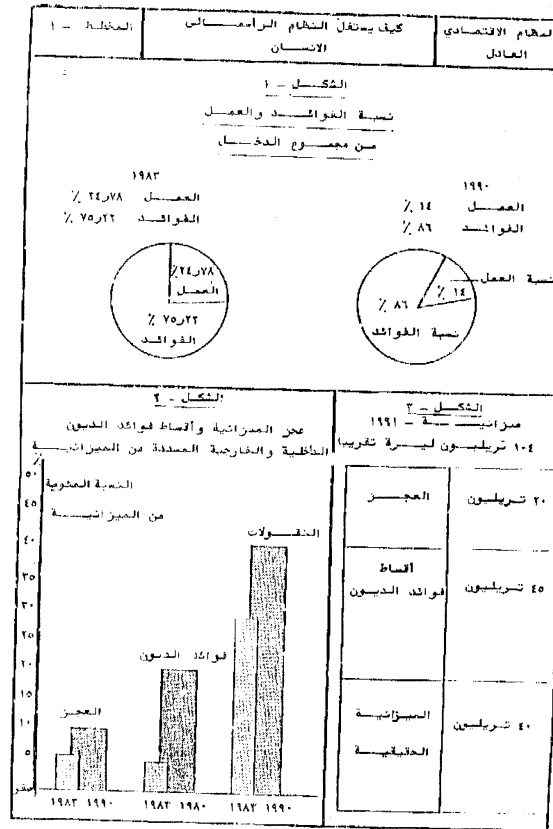 النظام الاقتصادي
العادل
كيف يستغل النظام الرأسمالي
الانسان
المخطط - ١
الشكل - ١
نسبة الفوائد والعمل
من مجموع الدخل
١٩٩٠
العمل ١٤ %
الفوائد ٨٦ %
نسبة العمل
١٤ %
٨٦ %
نسبة الفوائد
١٩٨٣
العمل ٢٤٫٧٨ %
الفوائد ٧٥٫٢٢ %
٢٤٫٧٨%
العمل
٧٥٫٢٢ %
الفوائد
الشكل - ٣
ميزانية - ١٩٩١
١٠٤ تريليون ليرة تقريبا
٢٠ تريليون
العجز
٤٥ تريليون
أقساط
فوائد الديون
٤٠ تريليون
الميزانية
الحقيقية
الشكل - ٢
عجز الميزانية وأقساط فوائد الديون
الداخلية والخارجية المسددة من الميزانية
%
النسبة المئوية
من الميزانية
٥٠
٤٥
٤٠
٣٥
٣٠
٢٥
٢٠
١٥
١٠
٥
صفر
النقولات
فوائد الديون
العجز
١٩٨٣ ١٩٩٠
١٩٨٣ ١٩٨٠
١٩٨٣ ١٩٩٠